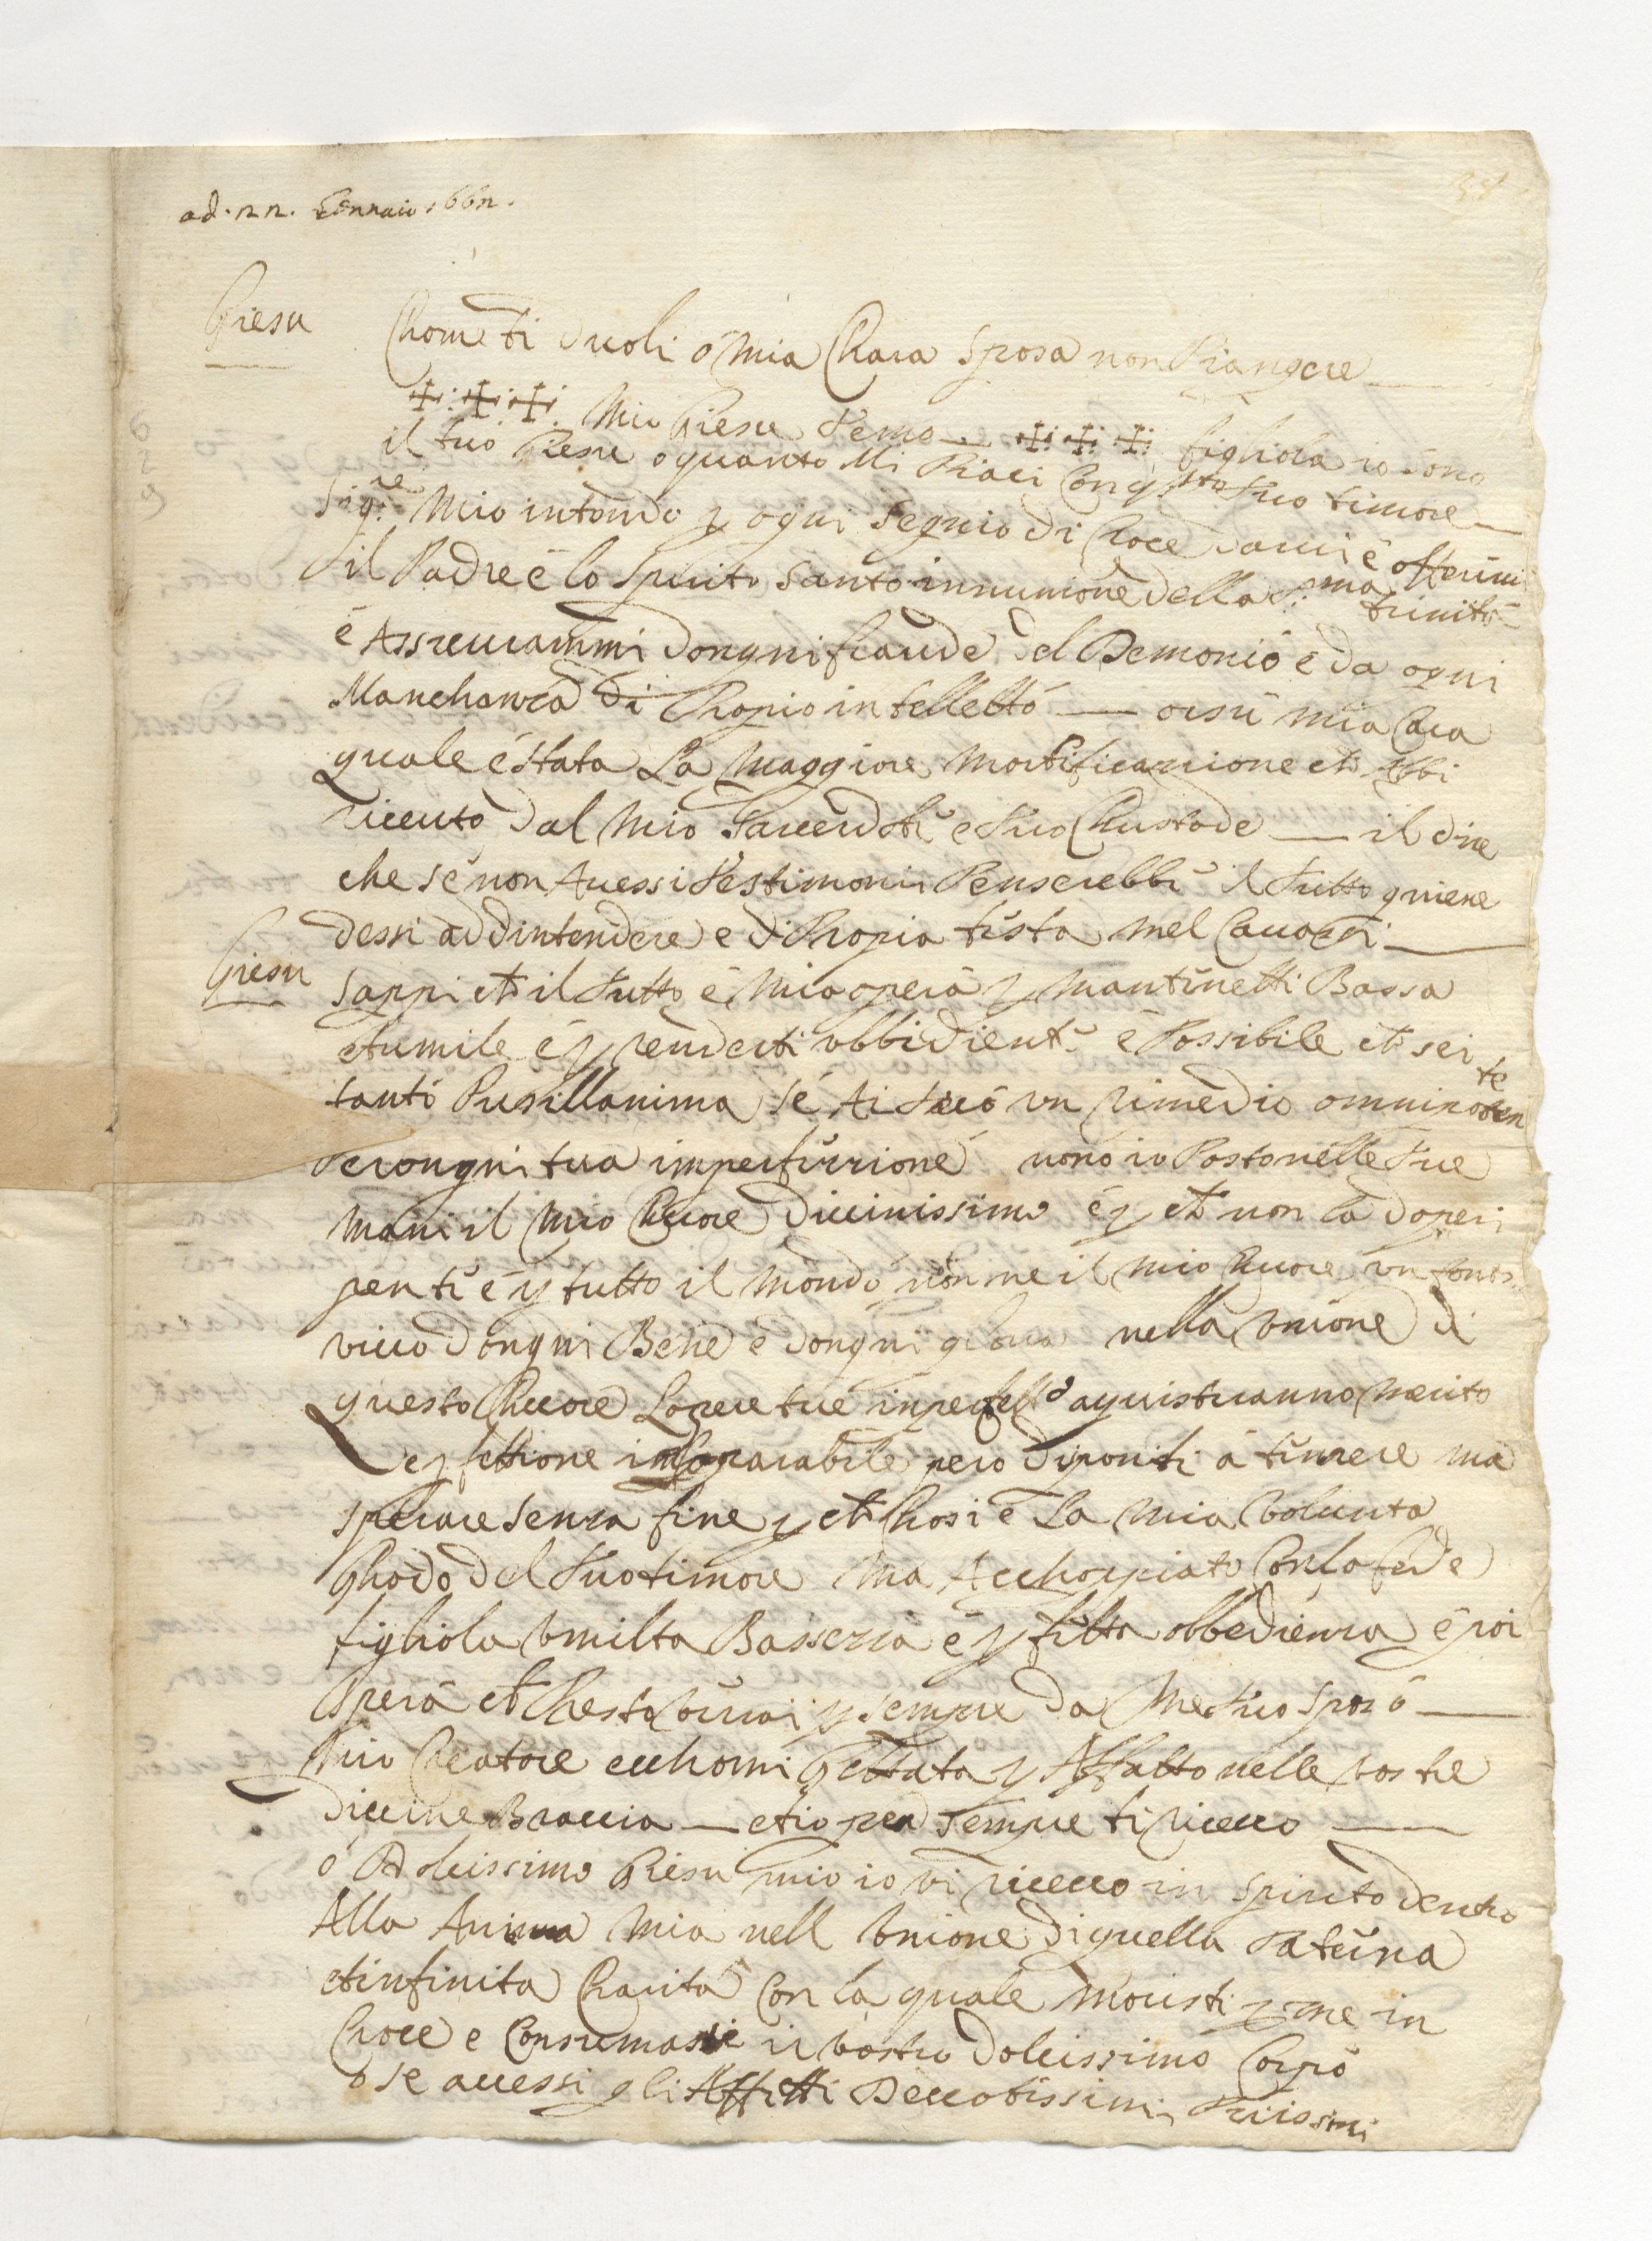 ad. 22. Gennaio 1662.
Giesu
Chome ti duoli ó mia Chara Sposa non Piangere
✠: ✠: ✠: Mio Giesu temo ✠: ✠: ✠: figliola io sono
il tuo Giesu o quanto Mi Piaci Con q.sto tuo timore
Sig.re Mio intondo p ogni Segnio di Croce darvi é offerirvi
il Padre é lo Spirito Santo in nunione della S.ma trinità
é Assicurarmi dongni fraude del Demonio é da ogni
Manchanza di Propio intelletto — orsù mia Cara
quale é stata La Maggiore Mortificazione che Abbi
riceuto dal Mio Sacerdote e tuo Chustode — il dire
che sé non Avessi testimoni Penserebbe il tutto
dessi ad dintendere e di Propia testa mel Cavassi
Giesu
Sappi che il tutto é Mia opera p mantenetti Bassa
etumile é p renderti ubbidiente é Possibile che sei
tanto Pusillanima sé Ai teco un rimedio omnipotente
Perongni tua imperfezzione nonó io Posto nelle tue
mani il Mio Chuore Divinissimo é p che non la doperi
per te é p tutto il mondo non né il mio Chuore un fonte
vivo dongni Bene é dongni gloria nella Unione di
questo Chuore Lopere tue inperfette aquisteranno Merito
e pfettione insoparabile però diponiti á temere ma
Sperare senza fine p che Chosi é La Mia Volunta
Ghodo del tuo timore Ma Acchoppiato Con la fede
figliola Umilta Bassezza é pfetta obbedienza é poi
Spera che Chesta sempre da Me tuo Sposo
Mio Creatore ecchomi Gettata p Affatto nelle Vostre
Divine Braccia — etio per Sempre ti ricevo
ó Dolcissimo Giesu mio io vi ricevo in Spirito dentro
Alla Anima Mia nell Unione di quella Paterna
etinfinita Charità Con la quale Moristi p me in
Croce e Consumasti il Vostro Dolcissimo Corpo
o se avessi gli Affetti Devotissimi Purissimi